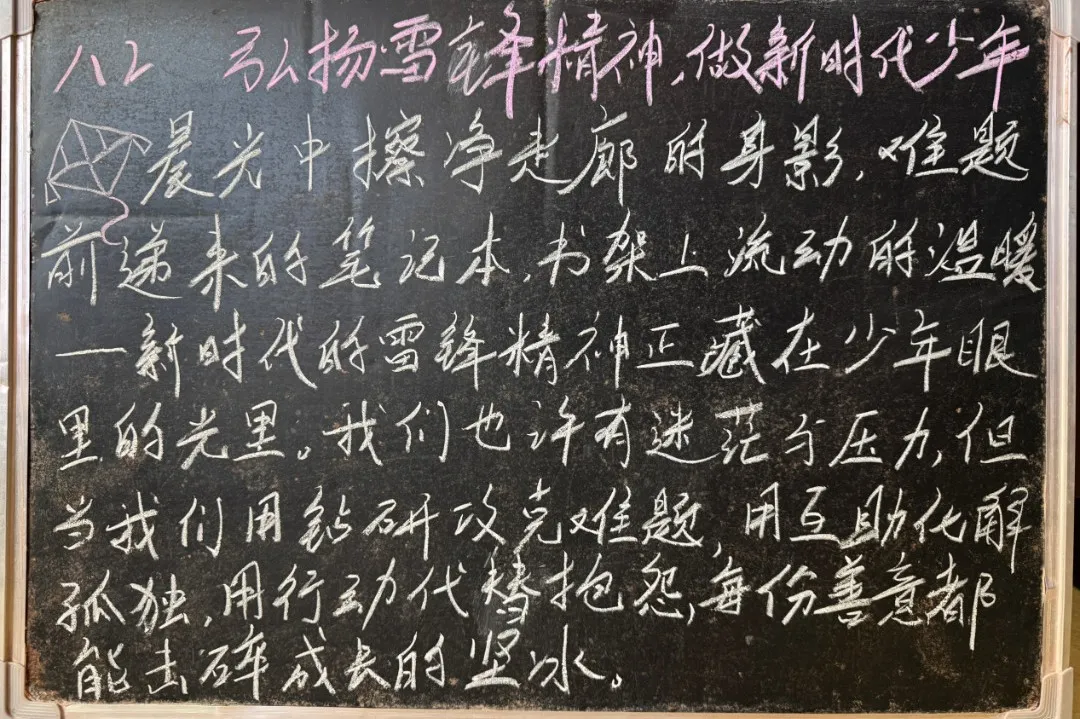 八2 弘扬雷锋精神，做新时代少年
晨光中擦净走廊的身影，难题
前递来的笔记本，书架上流动的温暖
—新时代的雷锋精神正藏在少年眼
里的光里。我们也许有迷茫与压力，但
当我们用钻研攻克难题，用互助化解
孤独，用行动代替抱怨，每份善意都
能击碎成长的坚冰。